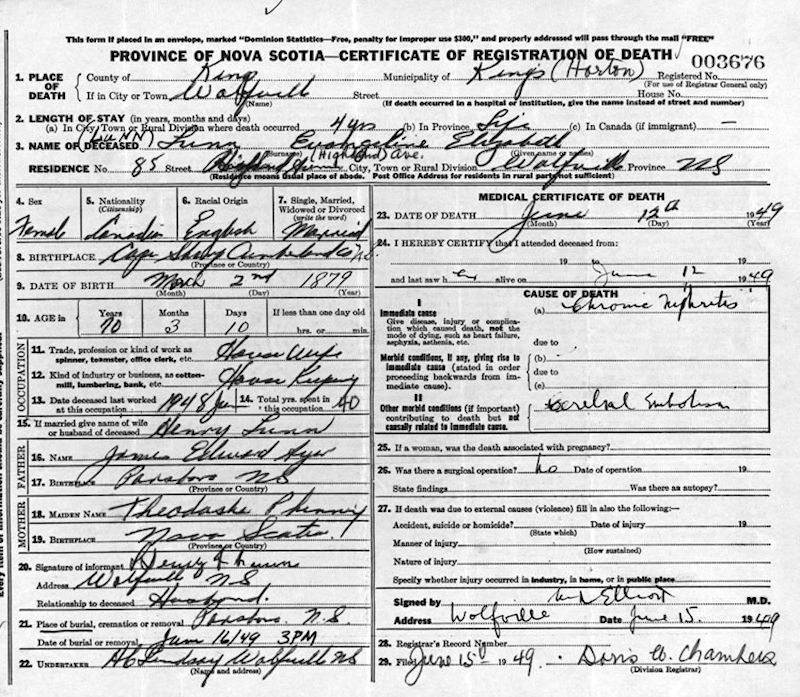 This form if placed in an envelope, marked "Dominion Statistics—Free, penalty for improper use $300," and properly addressed will pass through the mail "FREE"
PROVINCE OF NOVA SCOTIA—CERTIFICATE OF REGISTRATION OF DEATH
003676
1. PLACE OF DEATH
County of Kings Municipality of Kings (Horton) Registered No.
(For use of Registrar General only)
If in City or Town Wolfville Street House No.
(Name) (If death occurred in a hospital or institution, give the name instead of street and number)
2. LENGTH OF STAY (in years, months and days)
(a) In City, Town or Rural Division where death occurred 4 yrs (b) In Province Life (c) In Canada (if immigrant) —
(LUNN)
3. NAME OF DECEASED Lunn Evangeline Elizabeth
(Surname) (Given name or names)
(Highland) Ave.
RESIDENCE No. 85 Street City, Town or Rural Division Wolfville Province NS
(Residence means usual place of abode. Post Office Address for residents in rural parts not sufficient)
4. Sex
Female
5. Nationality
(Citizenship)
Canadian
6. Racial Origin
English
7. Single, Married, Widowed or Divorced
(write the word)
Married
8. BIRTHPLACE Cape Sharp Cumberland Co N.S.
(Province or Country)
9. DATE OF BIRTH March 2nd 1879
(Month) (Day) (Year)
10. AGE in Years Months Days If less than one day old
70 3 10 hrs. or min.
OCCUPATION
11. Trade, profession or kind of work as spinner, teamster, office clerk, etc. House Wife
12. Kind of industry or business, as cotton-mill, lumbering, bank, etc. House Keeping
13. Date deceased last worked at this occupation 1948 Jan
14. Total yrs. spent in this occupation 40
15. If married give name of wife or husband of deceased Henry Lunn
FATHER
16. NAME James Edward Ayer
17. BIRTHPLACE Parsboro NS
(Province or Country)
MOTHER
18. MAIDEN NAME Phinney
19. BIRTHPLACE Nova Scotia
(Province or Country)
20. Signature of informant Henry Lunn
Address Wolfville NS
Relationship to deceased Husband.
21. Place of burial, cremation or removal Parsboro. N.S.
Date of burial or removal June 16/49 3PM
22. UNDERTAKER Lindsay Wolfville NS
(Name and address)
MEDICAL CERTIFICATE OF DEATH
23. DATE OF DEATH June 12th 1949
(Month) (Day) (Year)
24. I HEREBY CERTIFY that I attended deceased from:
19 to
and last saw h er alive on June 12 1949
CAUSE OF DEATH
I
Immediate cause
Give disease, injury or complication which caused death, not the mode of dying, such as heart failure, asphyxia, asthenia, etc.
(a) Chronic Nephritis
due to
Morbid conditions, if any, giving rise to immediate cause (stated in order proceeding backwards from immediate cause).
(b)
due to
(c)
II
Other morbid conditions (if important) contributing to death but not causally related to immediate cause.
Cerebral Embolism
25. If a woman, was the death associated with pregnancy?
26. Was there a surgical operation? No Date of operation 19
State findings Was there an autopsy?
27. If death was due to external causes (violence) fill in also the following:—
Accident, suicide or homicide? Date of injury 19
(State which)
Manner of injury
(How sustained)
Nature of injury
Specify whether injury occurred in industry, in home, or in public place
Signed by Elliott M.D.
Address Wolfville Date June 15. 1949
28. Registrar's Record Number
29. Filed June 15th 1949. Doris W. Chambers
(Division Registrar)